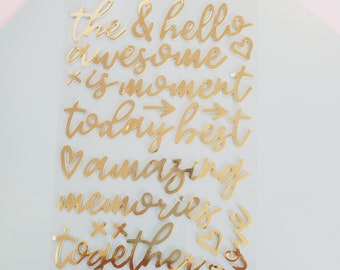 the & hello
awesome
is moment
today best
amazing
memories
together
love